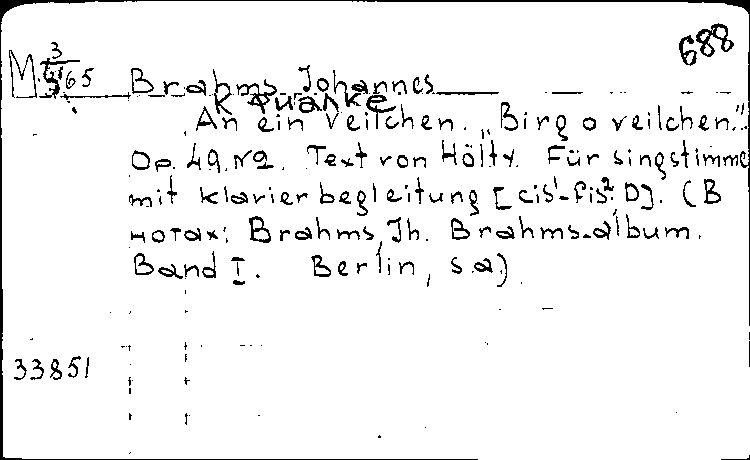 688
M 3
65 Brahms Johannes
К фиалке
An ein Veilchen. „Birg o veilchen."
Op. 49. N2. Text von Hölty. Für singstimme
mit klavierbegleitung [cis¹-fis², D]. (В
нотах: Brahms, Jh. Brahms-album.
Band I. Berlin, s.a.)
33851